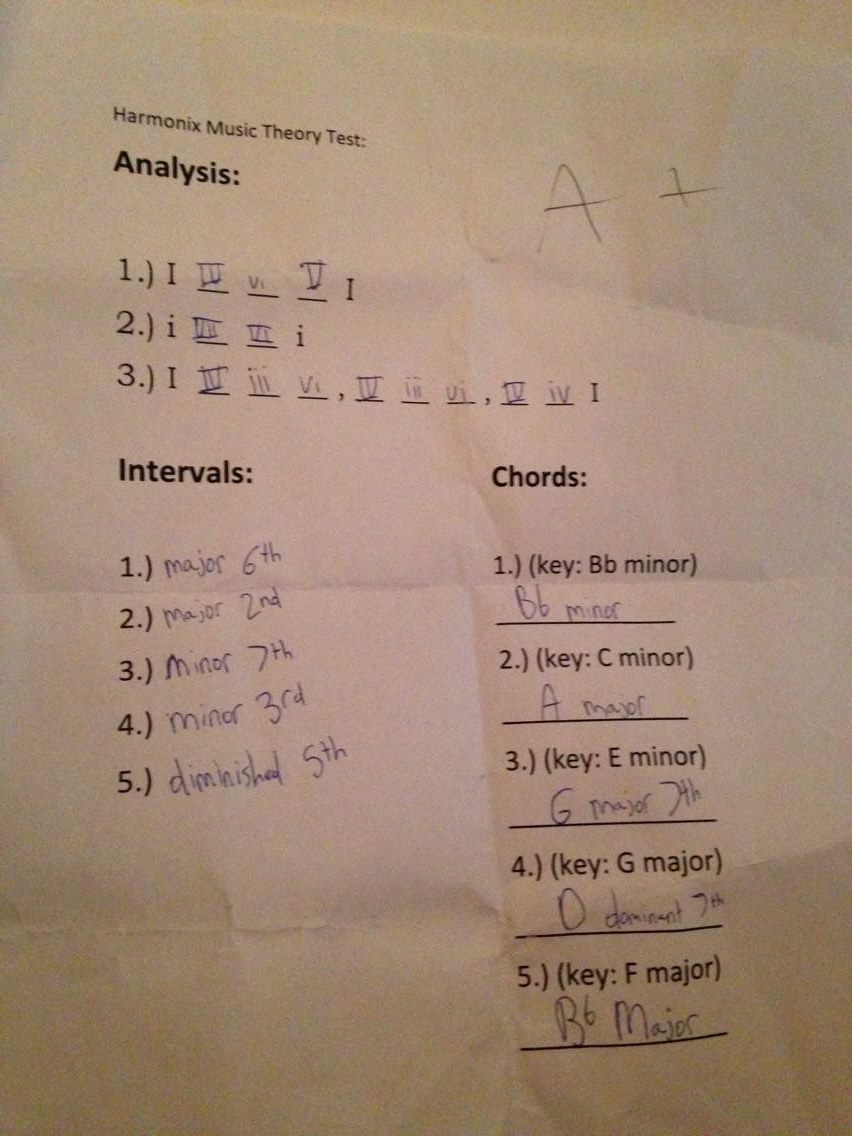 Harmonix Music Theory Test:
Analysis:
A +
1.) I IV vi V I
2.) i VII VI i
3.) I IV iii vi , IV ii vi , IV iv I
Intervals:
1.) major 6th
2.) major 2nd
3.) Minor 7th
4.) minor 3rd
5.) diminished 5th
Chords:
1.) (key: Bb minor)
Bb minor
2.) (key: C minor)
A major
3.) (key: E minor)
G major 7th
4.) (key: G major)
D dominant 7th
5.) (key: F major)
Bb Major